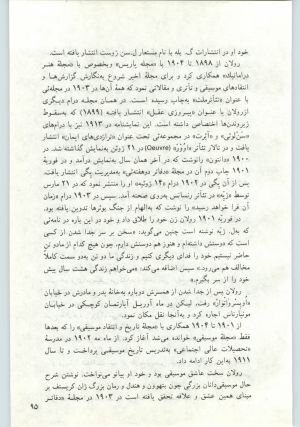 خود او در انتشارات گ. بله با نام مستعار ل.سن ژوست انتشار یافته است.
رولان از ۱۸۹۸ تا ۱۹۰۴ با «مجله پاریس» وبخصوص با «مجلۀ هنر
دراماتیک» همکاری کرد و برای مجلۀ اخیر شروع به‌نگارش گزارش‌ها و
انتقادهای موسیقی و تأتری و مقالاتی نمود که همۀ آن‌ها در ۱۹۰۳ در مجله‌ئی
با عنوان «تئاترملت» به‌چاپ رسیده است. در همان مجله درام دیگری
ازرولان با عنوان «پیروزی عقل» انتشاریافت (۱۸۹۹) که به‌سقوط
ژیروندن‌ها اختصاص داشته است. این نمایشنامه در ۱۹۱۳ نیز با درام‌های
«سن‌لوئی» و «آئرت» در مجموعه‌ئی تحت عنوان «تراژدی‌های ایمان» انتشار
یافت و در تالار تئاتر «اوُوْرْ» (Oeuvre) در ۲۱ ژوئن به‌نمایش گذاشته شد. در
۱۹۰۰ «دانتون» رانوشت که در آخر همان سال به‌نمایش درآمد و در فوریۀ
۱۹۰۱ چاپ دوم آن در مجلۀ «دفاتر دوهفته‌ئی» به‌مدیریت پگی انتشار یافت.
پس از آن پگی در ۱۹۰۲ درام «۱۴ ژوئیه» او را منتشر نمود که در ۲۱ مارس
توسط «ژیه» در تئاتر رنسانس به‌روی صحنه آمد. سپس در ۱۹۰۳ درام «زمان
آن فرا خواهد رسید» را نوشت که به‌الهام از جنگ بوئرها تدوین یافته بود.
در فوریه ۱۹۰۱ رولان زن خود را طلاق داد و خود در این باره در نامه‌ئی
که به‌ل. ژیه نوشته است چنین می‌گوید: «سخن بر سر جدا شدن از کسی
است که دوستش داشته‌ام و هنوز هم دوستش دارم. چون هیچ کدام از ما دو تن
حاضر نیستیم خود را فدای دیگری کنیم و زندگی ما دو تن به‌دو سمت کاملاً
مخالف هم می‌رود». سپس اضافه می‌کند: «می‌خواهم زندگی هشت سال پیش
خود را از سر بگیرم.»
رولان پس از جدا شدن از همسرش دوباره به‌خانۀ پدر و مادرش در خیابان
«اُبسِرْواتُوار» رفت، لیکن در ماه آوریل آپارتمان کوچکی در خیابان
مونپارناس اجاره کرد و به‌آنجا نقل مکان نمود.
از ۱۹۰۱ تا ۱۹۰۴ همکاری با «مجلۀ تاریخ و انتقاد موسیقی» را که بعدها
فقط «مجلۀ موسیقی» خوانده می‌شد آغاز کرد. از ماه مه ۱۹۰۲ در مدرسۀ
«تحصیلات عالی اجتماعی» به‌تدریس تاریخ موسیقی پرداخت و تا سال
۱۹۱۱ به‌این کار ادامه داد.
رولان سخت عاشق موسیقی بود و خود او پیانو می‌نواخت. نوشتن شرح
حال موسیقی‌دانان بزرگی چون بتهوون و هندل و رمان بزرگ ژان کریستف بر
مبنای همین عشق و علاقه تحقق یافته است در ۱۹۰۳ در مجلۀ «دفاتر
۹۵